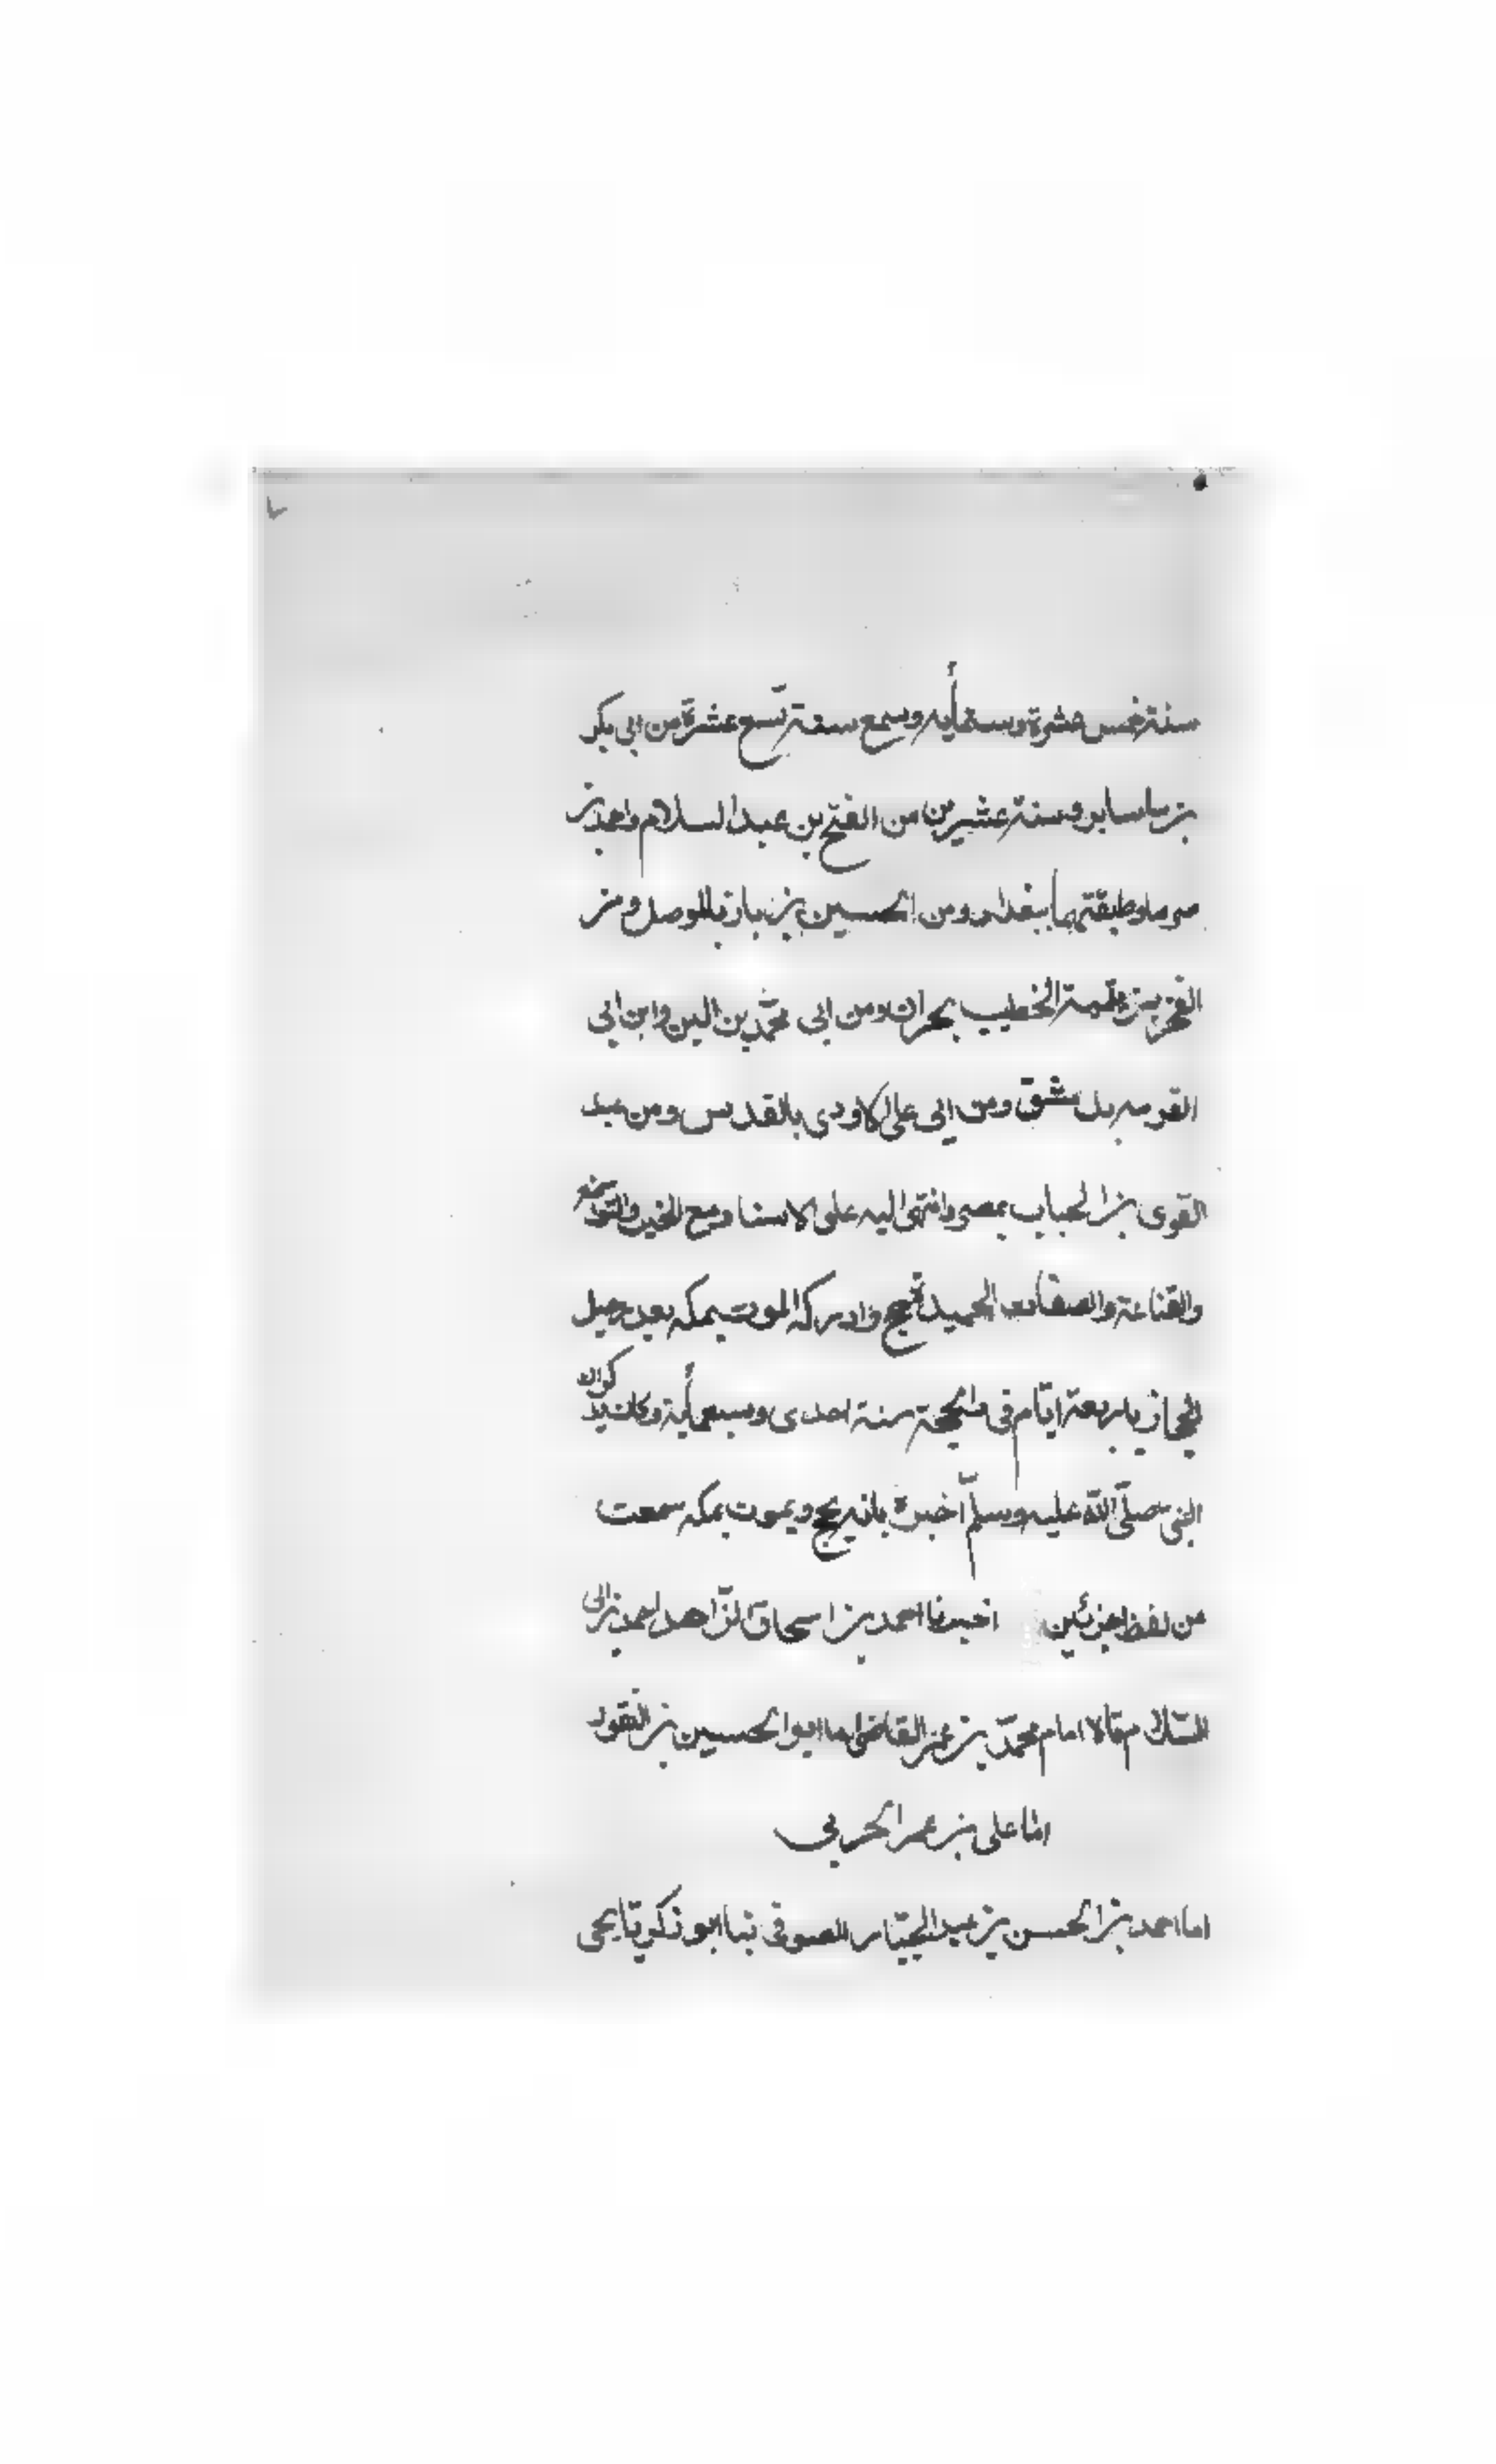 سنة خمس عشرة وستمأيه وسمع سنة تسع عشرة من ابى بكر
بن سابور وسنة عشرين من الفتح بن عبد السلام واحمد بن
صرما وطبقتهما ببغداد ومن الحسين بن باز بالموصل ومن
الفخر بن تيمية الخطيب بحران ومن ابى محمد بن البن وابن ابى
بدمشق ومن ابى على الاودى بالقدس ومن عبد
القوى بن الجباب بمصر وانتهى اليه على الاسنا دمع الخير والتواضع
والقناعة والصفات الحميدة حج وادركه الموت بمكه بعد رحيل
باربعة ايّام فى ذالحجة سنة احدى وسبعمأية وكان يذكران
النبى صلّى اللّه عليه وسلّم اخبرة بانه يحج ويموت بمكه سمعت
من لفظه جزئين اخبرنا احمد بن اسحاق احمد بن ابى
محمّد بن عمر القاضى اما ابو الحسين بن النقور
انا على بن عمر الحربى
اما احمد بن الحسن بن عبد الجبّار الصوفى ثنا ابو زكريّا يحى